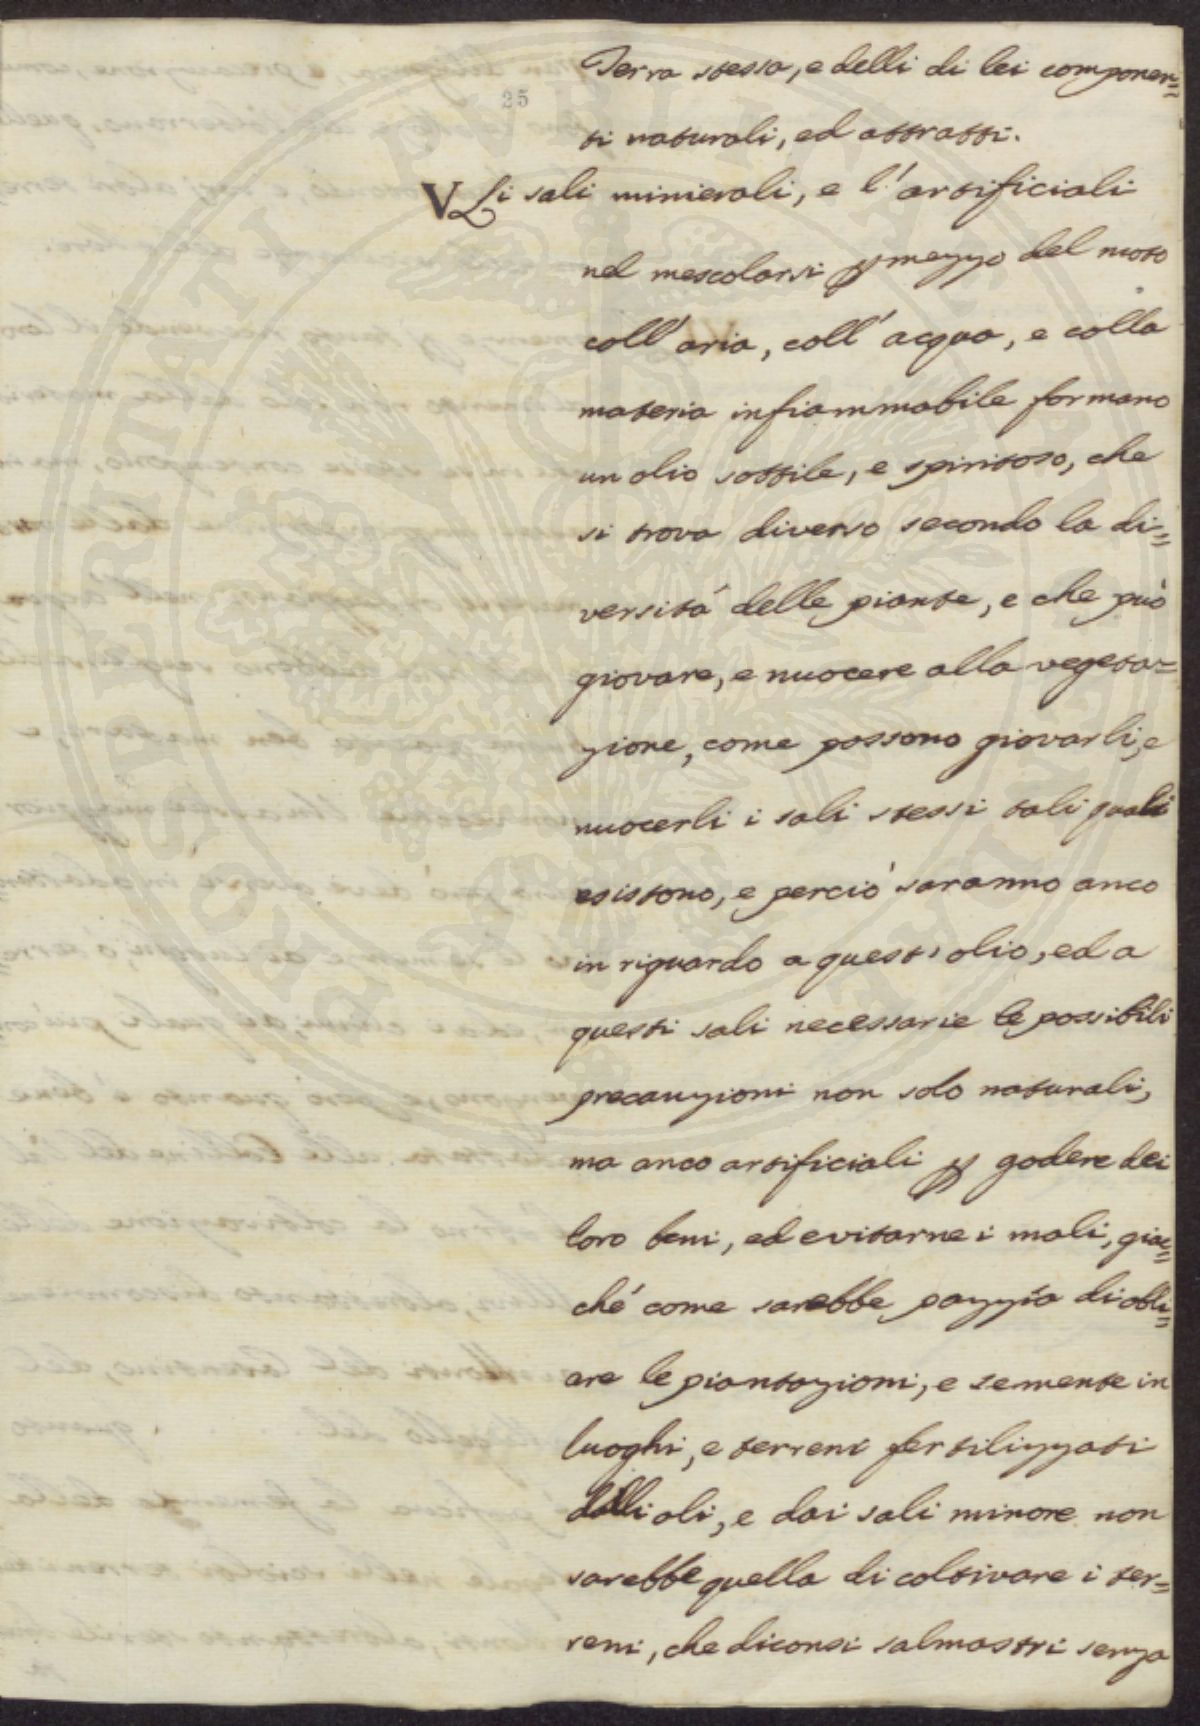 25
Terra stessa, e delli di lei componen=
ti naturali, ed attratti.
V Li sali minierali, e l'artificiali
nel mescolarsi p mezzo del moto
coll' aria, coll' acqua, e colla
materia infiammabile formano
un olio sottile, e spiritoso, che
si trova diverso secondo la di=
versitá delle piante, e che può
giovare, e nuocere alla vegeta=
zione, come possono giovarli, e
nuocerli i sali stessi tali quali
esistono, e perció saranno anco
in riguardo a quest' olio, ed a
questi sali necessarie le possibili
precauzioni non solo naturali,
ma anco artificiali p godere dei
loro beni, ed evitarne i mali, giac=
ché come sarebbe pazzía di obli=
are le piantazioni, e semente in
luoghi, e terreni fertilizzati
dalli oli, e dai sali minore non
sarebbe quella di coltivare i ter=
reni, che diconsi salmastri senza
PROSPERITATI PUBLICAE AUGENDAE